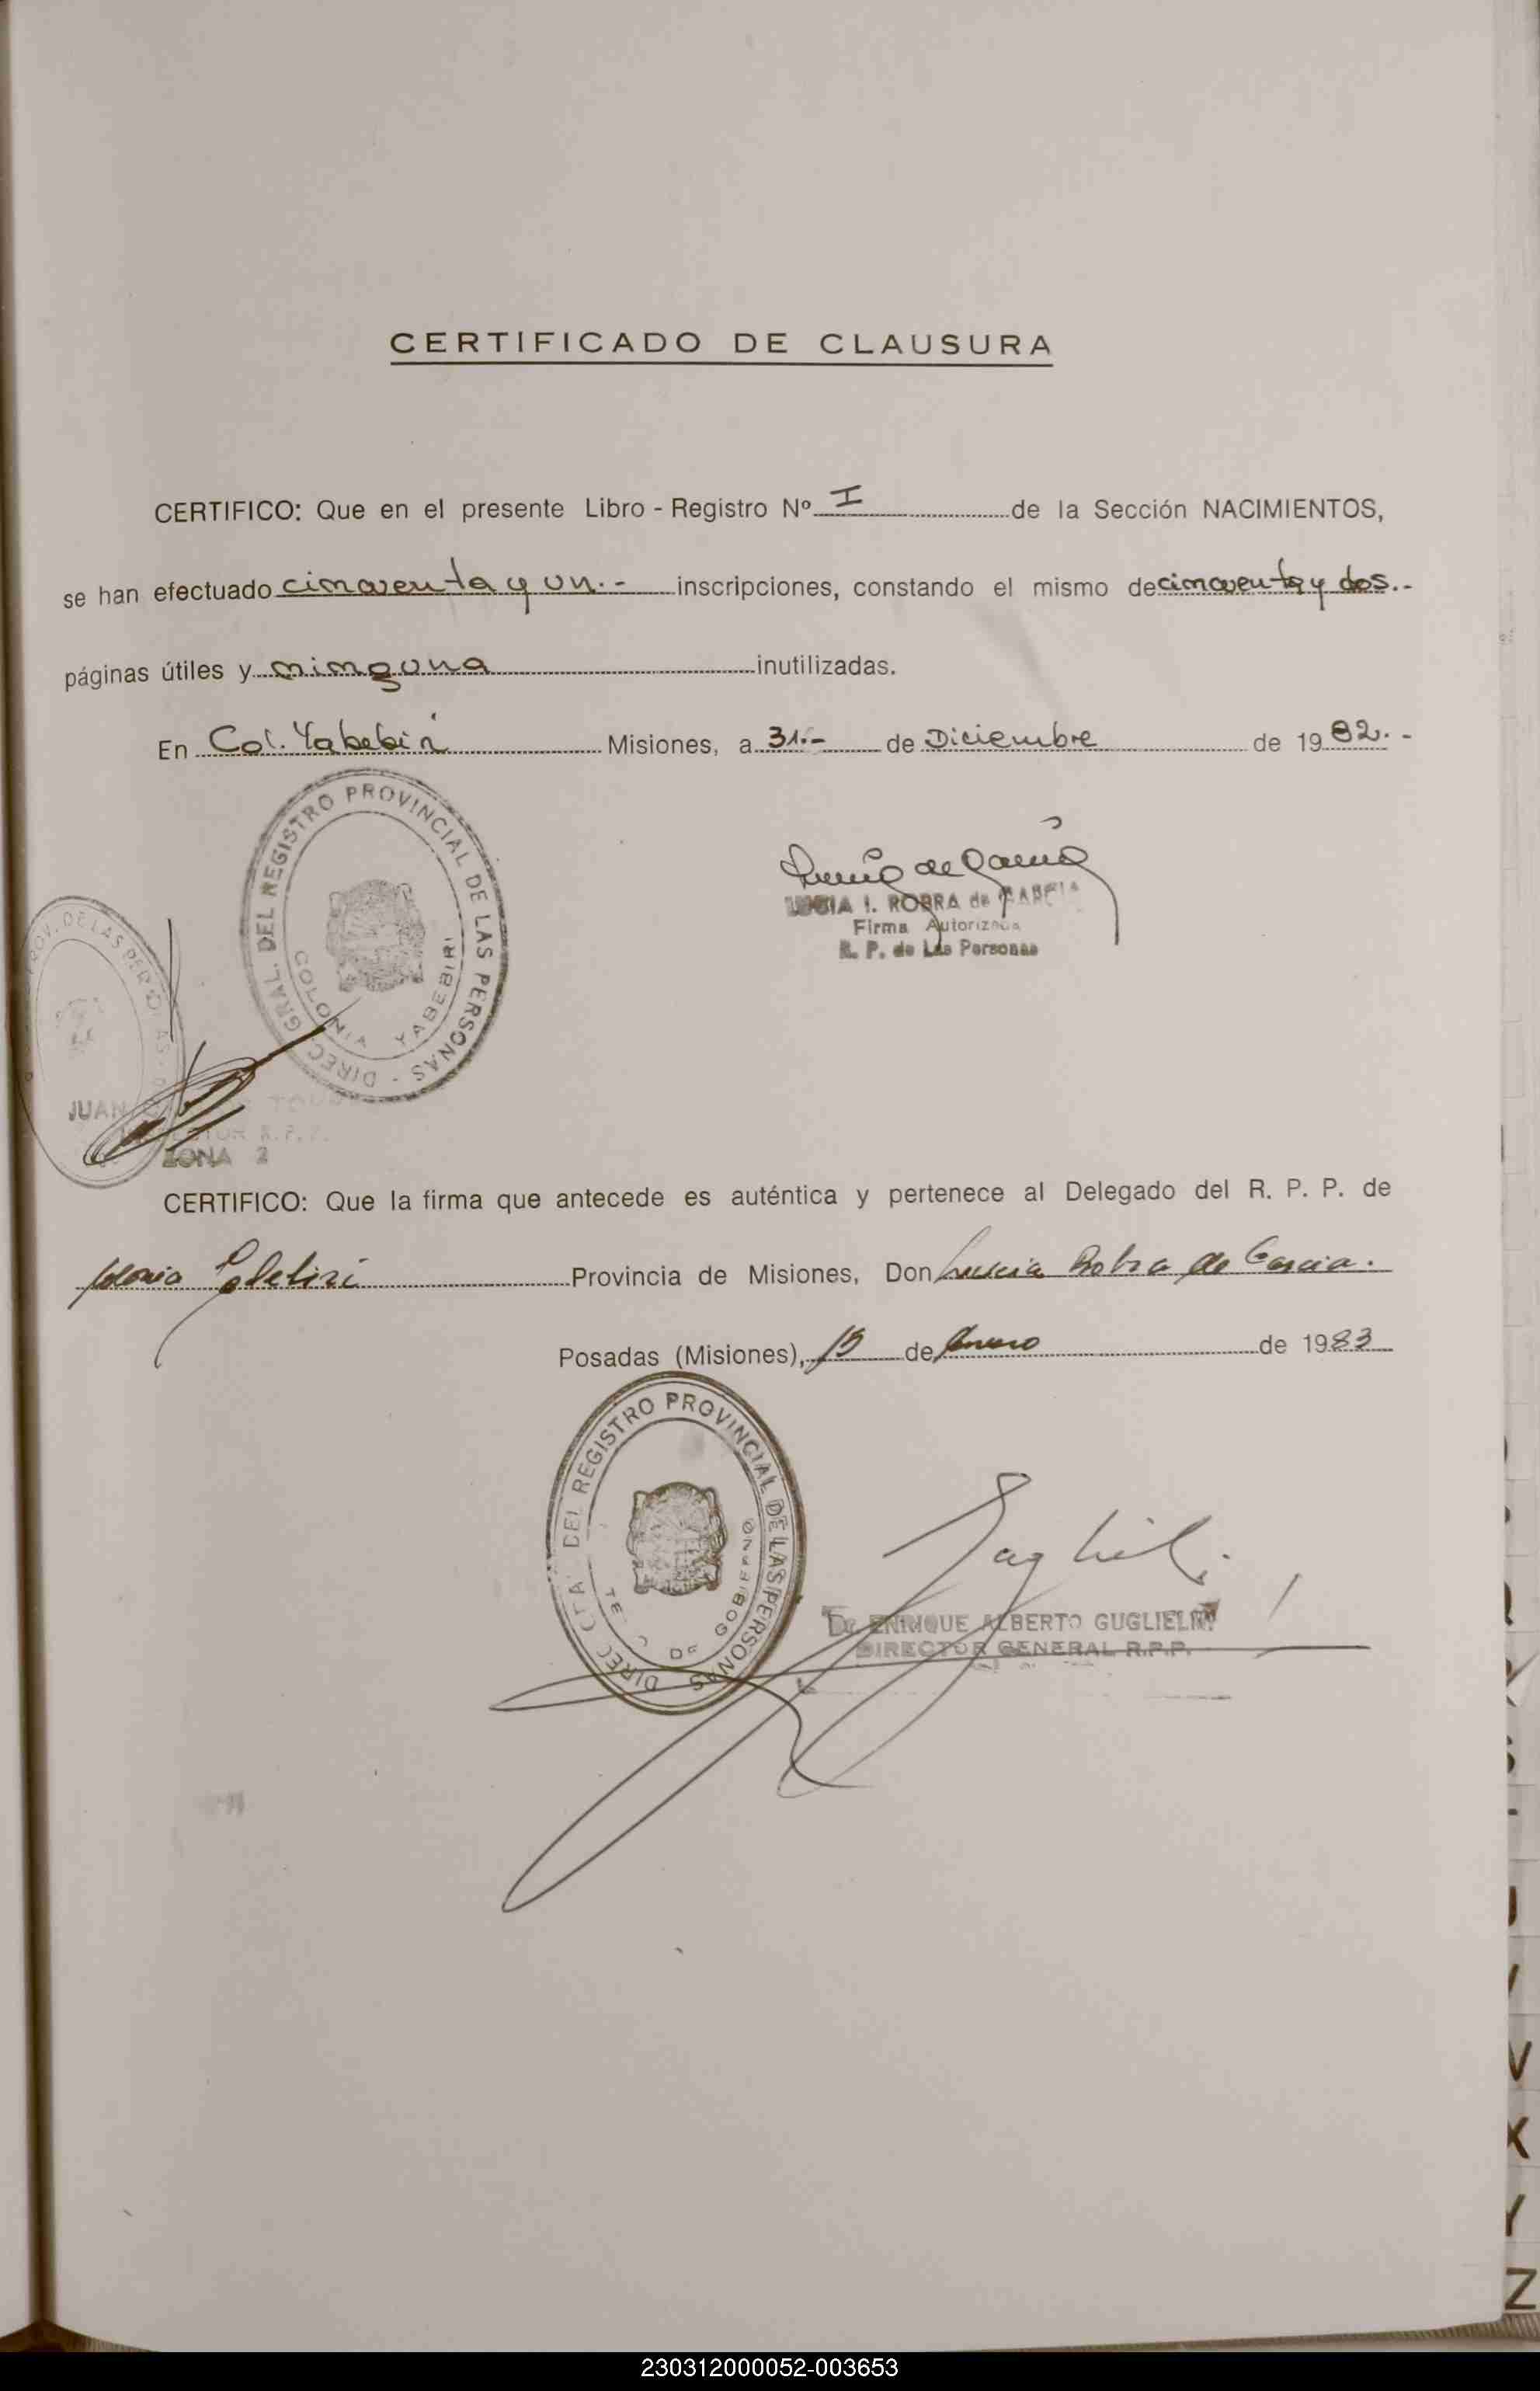 CERTIFICADO DE CLAUSURA
CERTIFICO: Que en el presente Libro - Registro Nº I de la Sección NACIMIENTOS,
se han efectuado cincuenta y un.- inscripciones, constando el mismo de cincuenta y dos.-
páginas útiles y ninguna inutilizadas.
En Col. Yabebiri Misiones, a 31.- de Diciembre de 1982.-
DIREC. GRAL. DEL REGISTRO PROVINCIAL DE LAS PERSONAS -
COLONIA YABEBIRI
de Garcia
LUCIA I. ROBRA de GARCIA
Firma Autorizada
R. P. de Las Personas
PROV. DE LAS PER
JUAN
ZONA 2
CERTIFICO: Que la firma que antecede es auténtica y pertenece al Delegado del R. P. P. de
Colonia Yabebiri Provincia de Misiones, Don Lucia Robra de Garcia.
Posadas (Misiones), 15 de Enero de 1983
DEL REGISTRO PROVINCIAL DE LAS PERSONAS
DE GOBIERNO
Dr. ENRIQUE ALBERTO GUGLIELMI
DIRECTOR GENERAL R.P.P.
V
X
Y
Z
230312000052-003653